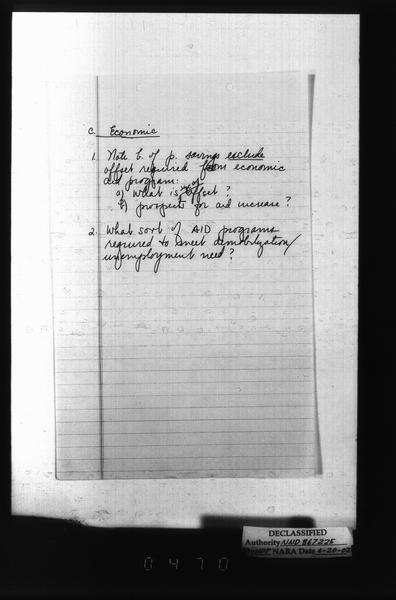 C. Economic
1. Note b. of p. savings exclude
offset required from economic
aid program:
a) What is offset?
b) prospects for aid increase?
2. What sort of AID programs
required to meet demobilization/
unemployment need?
DECLASSIFIED
Authority NND 867225
NARA Date 6-20-02
0470